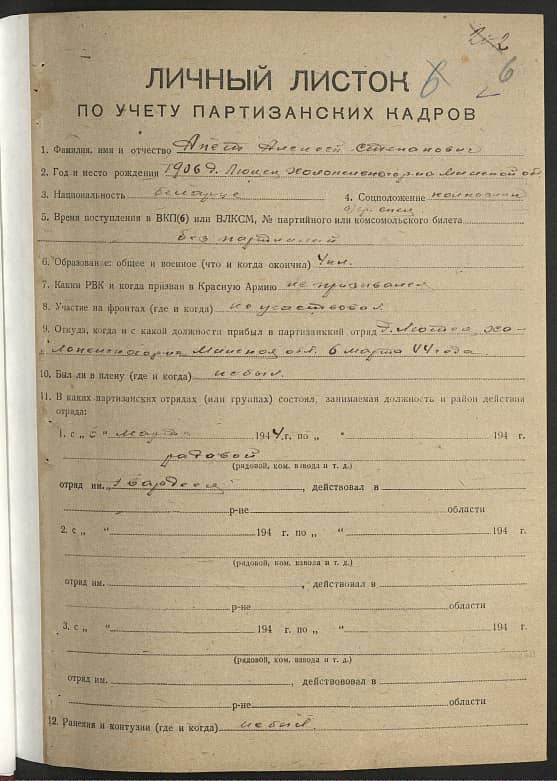 6
ЛИЧНЫЙ ЛИСТОК
ПО УЧЕТУ ПАРТИЗАНСКИХ КАДРОВ
1. Фамилия, имя и отчество Апет Алексей Степанович
2. Год и место рождения 1906 г. Минской об
3. Национальность беларус 4. Соцположение
5. Время поступления в ВКП(б) или ВЛКСМ, № партийного или комсомольского билета
без партийный
6. Образование: общее и военное (что и когда окончил) 4 кл.
7. Каким РВК и когда призван в Красную Армию не призывался
8. Участие на фронтах (где и когда) не участвовал
9. Откуда, когда и с какой должности прибыл в партизанский отряд
Минская обл. 6 марта 44 года
10. Был ли в плену (где и когда) не был.
11. В каких партизанских отрядах (или группах) состоял, занимаемая должность и район действия
отряда:
1. с „ 6 " марта 1944 г. по „ " 194 г.
рядовой
(рядовой, ком. взвода и т. д.)
отряд им. Гвардеец, действовал в
р-не области
2. с „ " 194 г. по „ " 194 г.
(рядовой, ком. взвода и т. д.)
отряд им. , действовал в
р-не области
3. с „ " 194 г. по „ " 194 г.
(рядовой, ком. взвода и т. д.)
отряд им. , действововал в
р-не области
12. Ранения и контузии (где и когда) не был